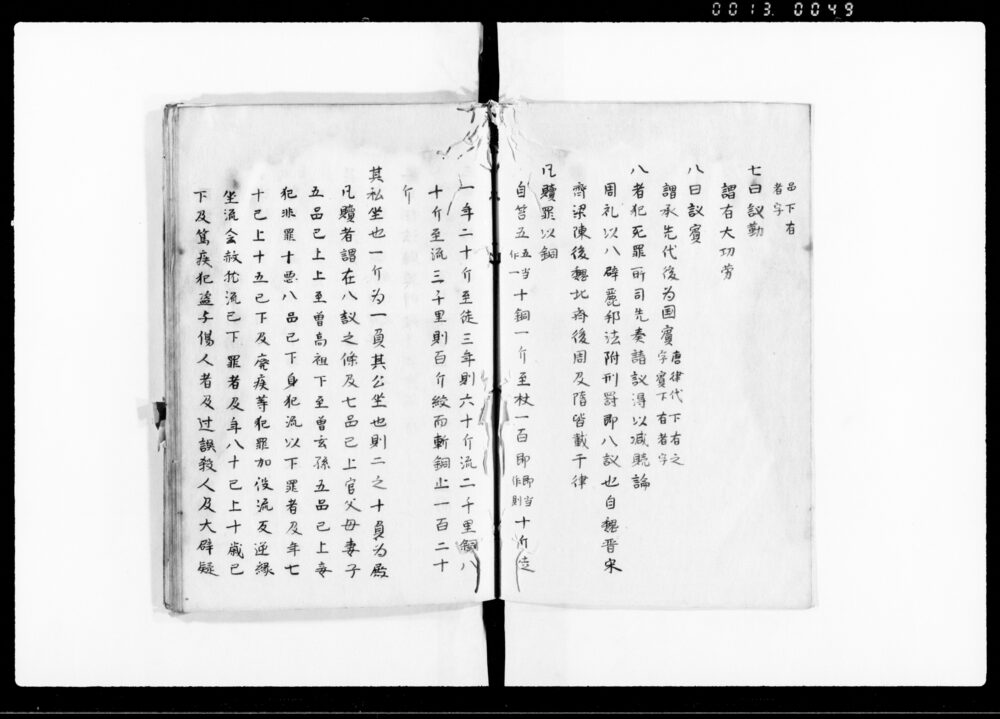 0013. 0049
品下有
者字
七曰議勤
謂有大功劳
八曰議賓
謂承先代後为国賓 唐律代下有之
字賓下有者字
八者犯死罪所司先奏請議得以减贖論
周礼以八辟麗邦法附刑罰即八議也自魏晋宋
齊梁陳後魏北斉後周及隋皆載于律
凡贖罪以銅
自笞五 五当
作一 十銅一斤至杖一百即 即当
作則 十斤徒
一年二十斤至徒三年則六十斤流二千里銅八
十斤至流三千里則百斤絞而斬銅止一百二十
斤
其私坐也一斤为一負其公坐也則二之十負为殿
凡贖者謂在八議之條及七品已上官父母妻子
五品已上上至曽高祖下至曽玄孫五品已上妾
犯非罪十悪八品已下身犯流以下罪者及年七
十已上十五已下及廃疾等犯罪加役流反逆縁
坐流会赦犹流已下罪者及年八十已上十歳已
下及篤疾犯盗与傷人者及过誤殺人及大辟疑